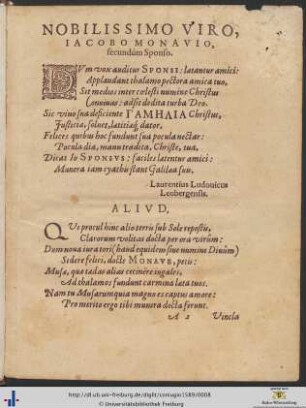 NOBILISSIMO VIRO,
IACOBO MONAVIO,
secundùm Sponso.
DVm vox auditur SPONSI: lætantur amici:
Applaudant thalamo pectora amica tuo,
Sit medius inter cælesti numine Christus
Conuiuas: adsit dedita turba Deo.
Sic vino sua deficiente ΓΑΜΗΛΙΑ Christus,
Justicia, solvet, lætitiæq́; dator.
Felices quibus hoc fundunt sua pocula nectar:
Pocula dia, manu tradita, Christe, tua.
Dicat Io SPONSVS: faciles lætentur amici:
Munera iam cyathis stant Galilæa suis.
Laurentius Ludouicus
Leobergensis.
ALIVD.
QVs procul hinc alio terris sub Sole repostis,
Clarorum volitas docta per ora virûm:
Dum nova iura tori (haud equidem sine numine Divûm)
Sedere felici, docte MONAVE, petis:
Musæ, quæ tædas aliàs cecinére iugales,
Ad thalamos fundunt carmina læta tuos.
Nam tu Musarumquia magno es captus amore:
Pro merito ergo tibi munera docta ferunt.
A 2 Vincla
http://dl.ub.uni-freiburg.de/diglit/somagio1589/0003
© Universitätsbibliothek Freiburg
Baden-Württemberg